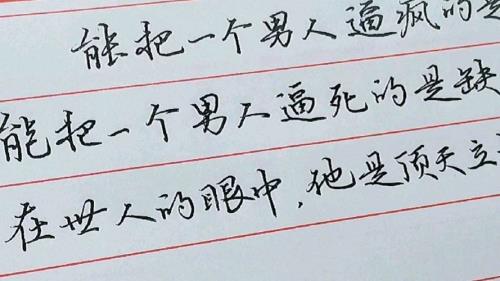 能把一个男人逼疯的是
能把一个男人逼死的是缺
在世人的眼中,他是顶天立